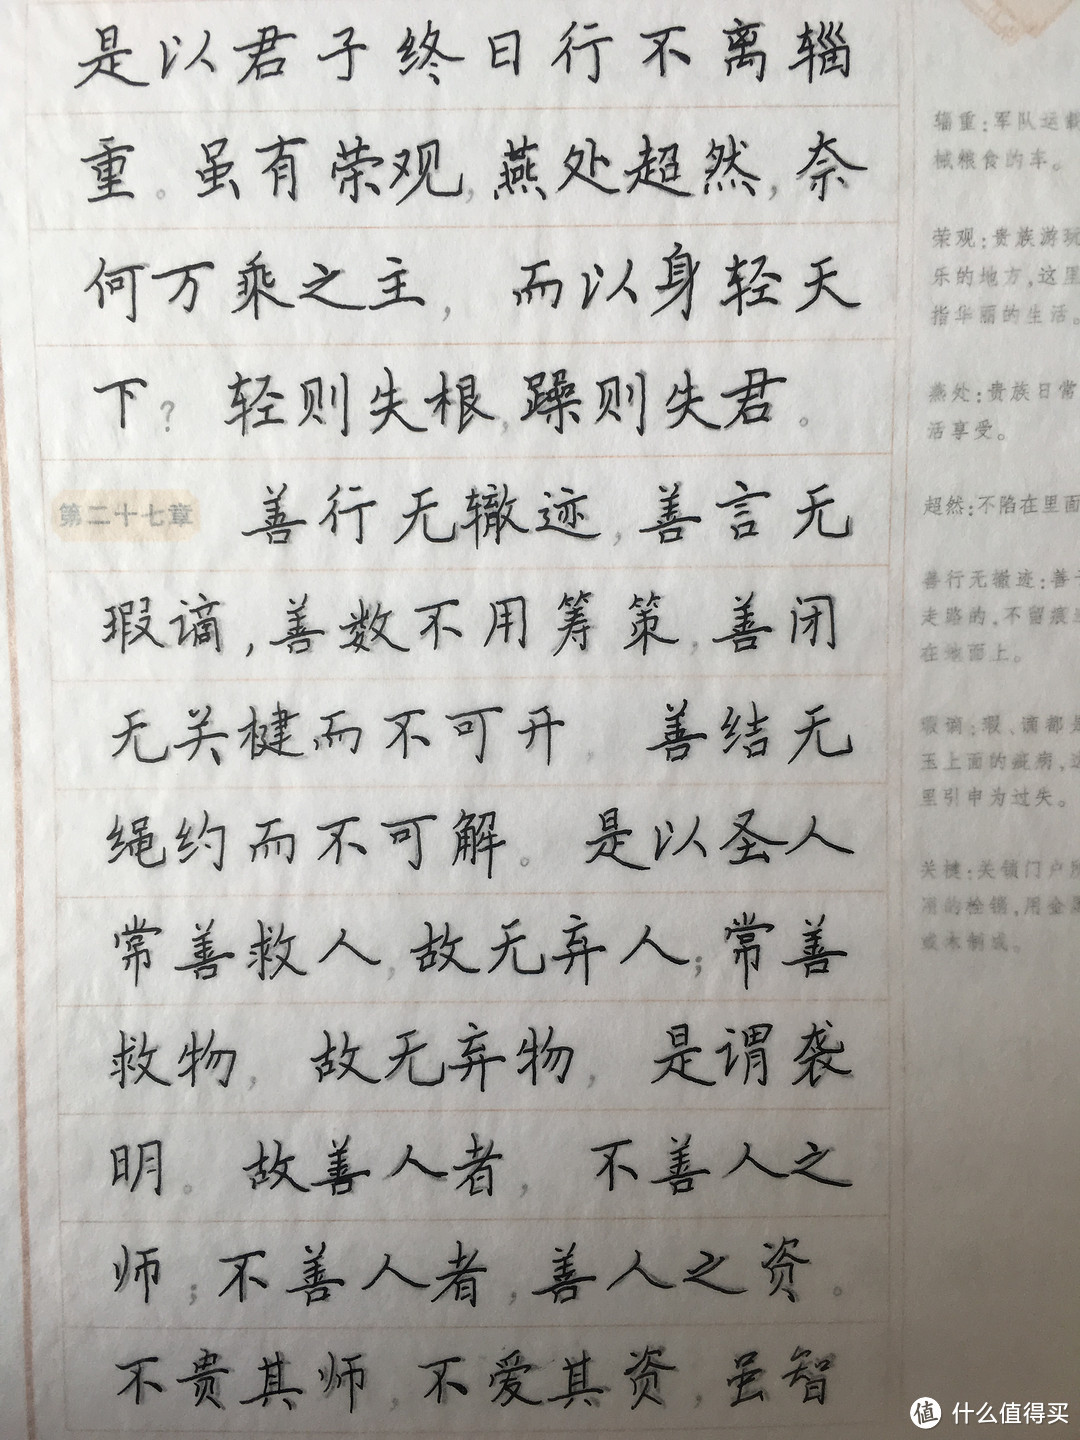 是以君子终日行不离辎
重。虽有荣观,燕处超然,奈
何万乘之主,而以身轻天
下?轻则失根,躁则失君。
第二十七章 善行无辙迹,善言无
瑕谪,善数不用筹策,善闭
无关楗而不可开,善结无
绳约而不可解。是以圣人
常善救人,故无弃人;常善
救物,故无弃物,是谓袭
明。故善人者,不善人之
师;不善人者,善人之资。
不贵其师,不爱其资,虽智
辎重:军队运载
械粮食的车。
荣观:贵族游玩
乐的地方,这里
指华丽的生活。
燕处:贵族日常
活享受。
超然:不陷在里面
善行无辙迹:善于
走路的,不留痕迹
在地面上。
瑕谪:瑕、谪都是
玉上面的疵病,这
里引申为过失。
关楗:关锁门户所
用的栓销,用金属
或木制成。
值 什么值得买